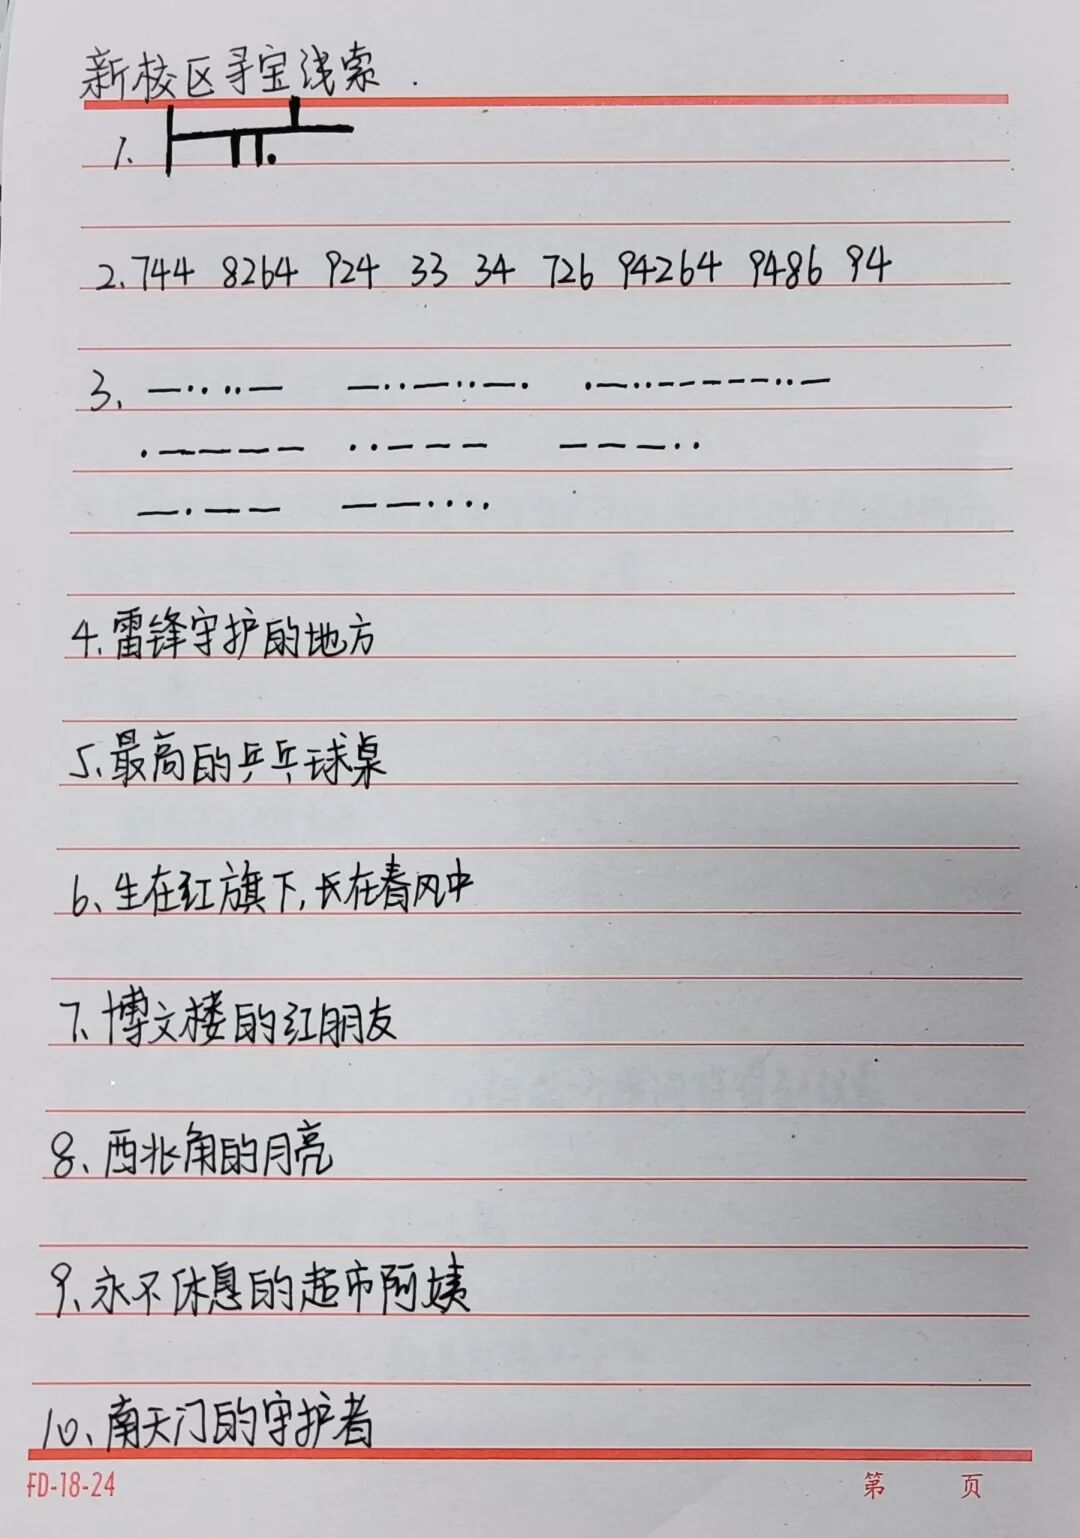 新校区寻宝线索.
1、
2、744 8264 924 33 34 726 94264 9486 94
3、—·· ··— —··—··—· ·—··—————··—
·———— ··——— ———··
—·—— ——····
4、雷锋守护的地方
5、最高的乒乓球桌
6、生在红旗下,长在春风中
7、博文楼的红朋友
8、西北角的月亮
9、永不休息的超市阿姨
10、南天门的守护者
FD-18-24 第 页